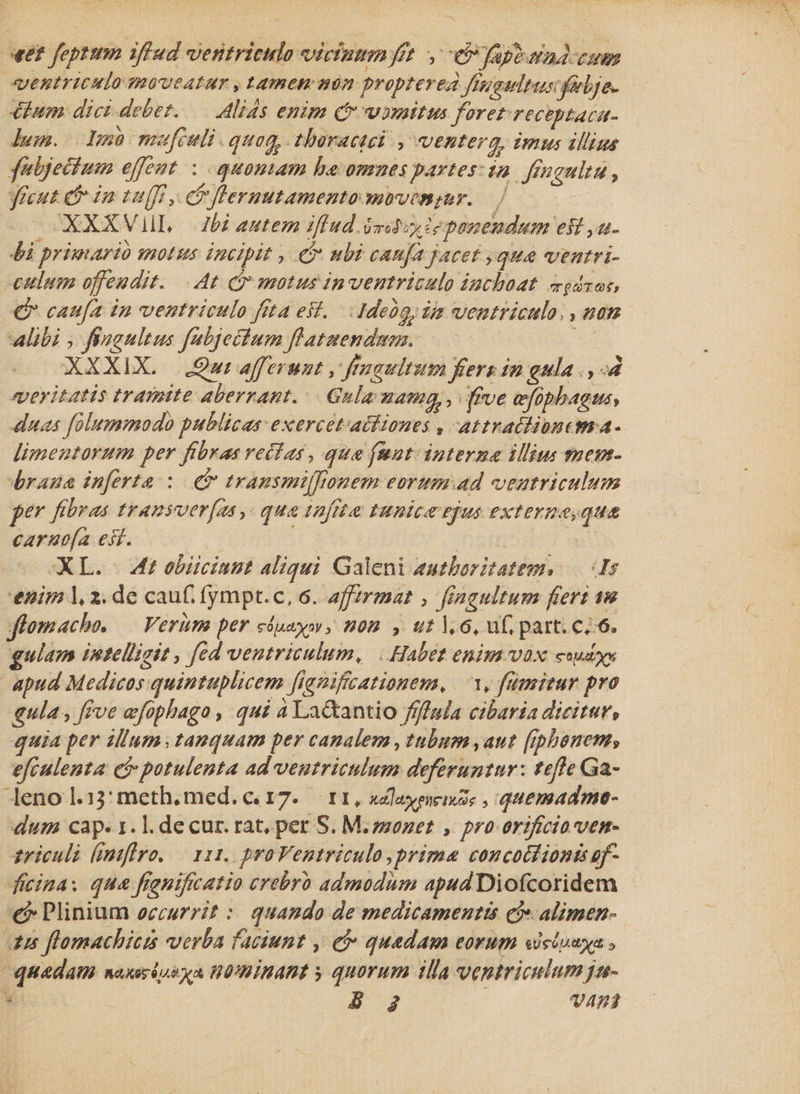 et ſeptum iſtud ventriculo vicinum ſit, & ſæpè unà cum
ventriculo moveatur, tamen non propterea ſingultus ſubje-
ctum dici debet. Aliàs enim & vomitus foret receptacu-
lum. Imò muſculi quoq; thoracici, venterq; imus illius
ſubjectum eſſent : quoniam hæ omnes partes in ſingultu,
ſicut & in tuſſi, & ſternutamento moventur.
XXXVIII. Ibi autem iſtud ὑποδοχὲς ponendum eſt, u-
bi primariò motus incipit, & ubi cauſa jacet, quæ ventri-
culum offendit. At & motus in ventriculo inchoat πρώτως,
& cauſa in ventriculo ſita eſt. Ideoq; in ventriculo, non
alibi, ſingultus ſubjectum ſtatuendum.
XXXIX. Qui aſſerunt, ſingultum fieri in gula, à
veritatis tramite aberrant. Gula namq;, ſive œſophagus,
duas ſolummodo publicas exercet actiones, attractionem a-
limentorum per fibras rectas, quæ ſunt internæ illius mem-
branæ inſertæ : & transmiſſionem eorum ad ventriculum
per fibras transverſas, quæ inſitæ tunicæ ejus externæ, quæ
carnoſa eſt.
XL. At obiiciunt aliqui Galeni authoritatem. Is
enim l, 2. de cauſ. ſympt. c, 6. affirmat, ſingultum fieri in
ſtomacho. Verùm per ςόμαχον, non, ut l, 6, uſ, part. c, 6.
gulam intelligit, ſed ventriculum. Habet enim vox ςομάχȣ
apud Medicos quintuplicem ſignificationem, 1, ſumitur pro
gula, ſive œſophago, qui à Lactantio fiſtula cibaria dicitur,
quia per illum, tanquam per canalem, tubum, aut ſiphonem,
eſculenta & potulenta ad ventriculum deferuntur: teſte Ga-
leno l. 13 meth. med. c. 17. II, καταχρηςικῶς, quemadmo-
dum cap. 1. l. de cur. rat, per S. M. monet, pro orificio ven-
triculi ſiniſtro. III. pro Ventriculo, primæ concoctionis of-
ficina: quæ ſignificatio crebrò admodùm apud Dioſcoridem
& Plinium occurrit : quando de medicamentis & alimen-
tis ſtomachicis verba faciunt, & quædam eorum εὐςόμαχα,
quædam κακοςόμαχα nominant ; quorum illa ventriculum ju-
B 3 vant